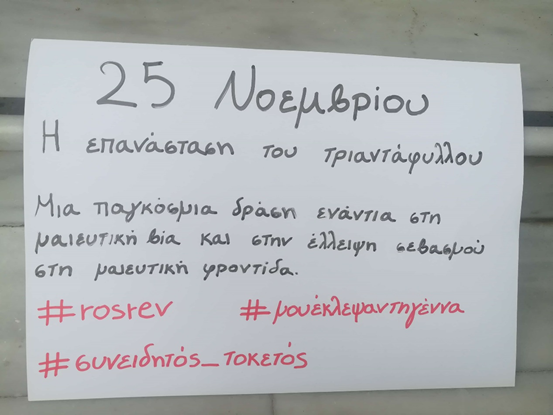 25 Νοεμβρίου
Η επανάσταση του τριαντάφυλλου
Μια παγκόσμια δράση ενάντια στη
μαιευτική βία και στην έλλειψη σεβασμού
στη μαιευτική φροντίδα.
#rosrev #μουέκλεψαντηγέννα
#συνειδητός_τοκετός